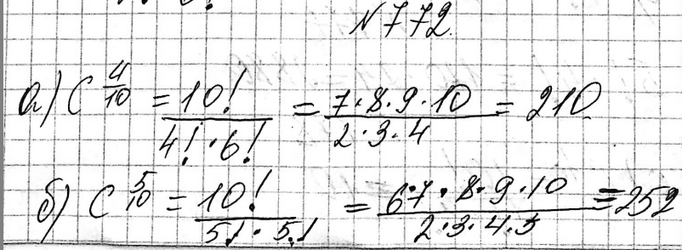 N 772.
а) C 4/10 = 10! / 4! · 6! = 7 · 8 · 9 · 10 / 2 · 3 · 4 = 210
б) C 5/10 = 10! / 5! · 5! = 6 · 7 · 8 · 9 · 10 / 2 · 3 · 4 · 5 = 252